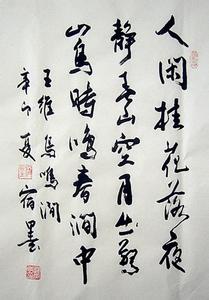 人闲桂花落夜
静春山空月出惊
山鸟時鸣春涧中
王维鸟鸣涧
辛卯夏宿墨